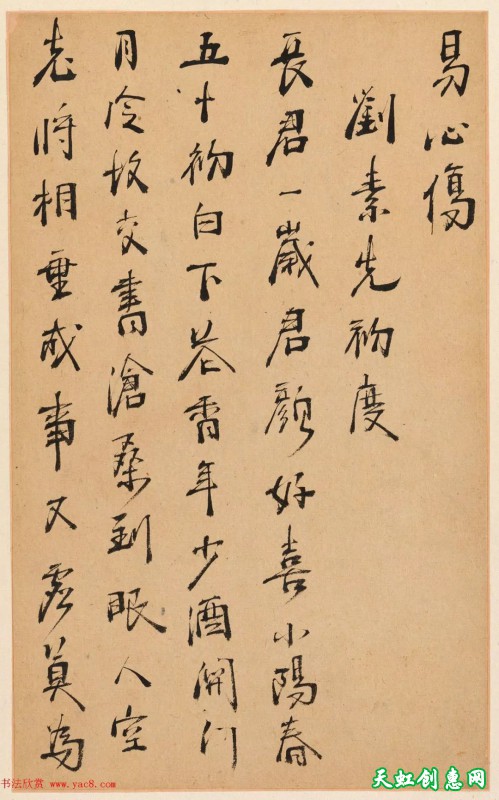 易心傷
劉素先初度
長君一歲君顏好喜小陽春
五十初白下花香年少酒開門
月冷故交書滄桑到眼人空
老將相垂成事又虛莫為
书法欣赏 www.yac8.com
天虹创意网